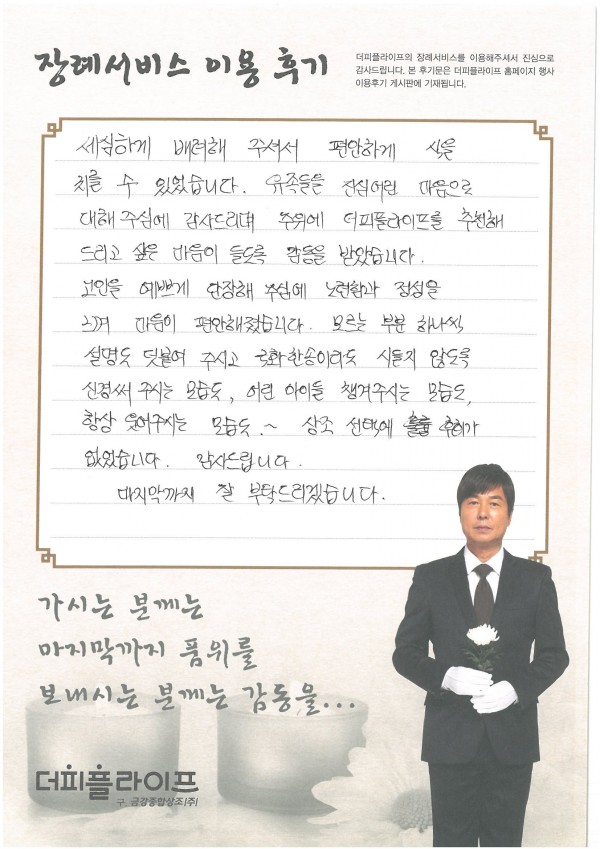 장례서비스 이용 후기
더피플라이프의 장례서비스를 이용해주셔서 진심으로
감사드립니다. 본 후기문은 더피플라이프 홈페이지 행사
이용후기 게시판에 기재됩니다.
세심하게 배려해 주셔서 편안하게 식을
치를 수 있었습니다. 유족들을 진심어린 마음으로
대해 주심에 감사드리며 주위에 더피플라이프를 추천해
드리고 싶은 마음이 들도록 감동을 받았습니다.
고인을 예쁘게 단장해 주심에 노련함과 정성을
느껴 마음이 편안해졌습니다. 모르는 부분 하나씩
설명도 덧붙여 주시고 국화 한송이라도 시들지 않도록
신경써 주시는 모습도, 어린 아이들 챙겨주시는 모습도,
항상 웃어주시는 모습도.~ 상조 선택에 후회가
없었습니다. 감사드립니다.
마지막까지 잘 부탁드리겠습니다.
가시는 분께는
마지막까지 품위를
보내시는 분께는 감동을...
더피플라이프
구. 금강종합상조(주)